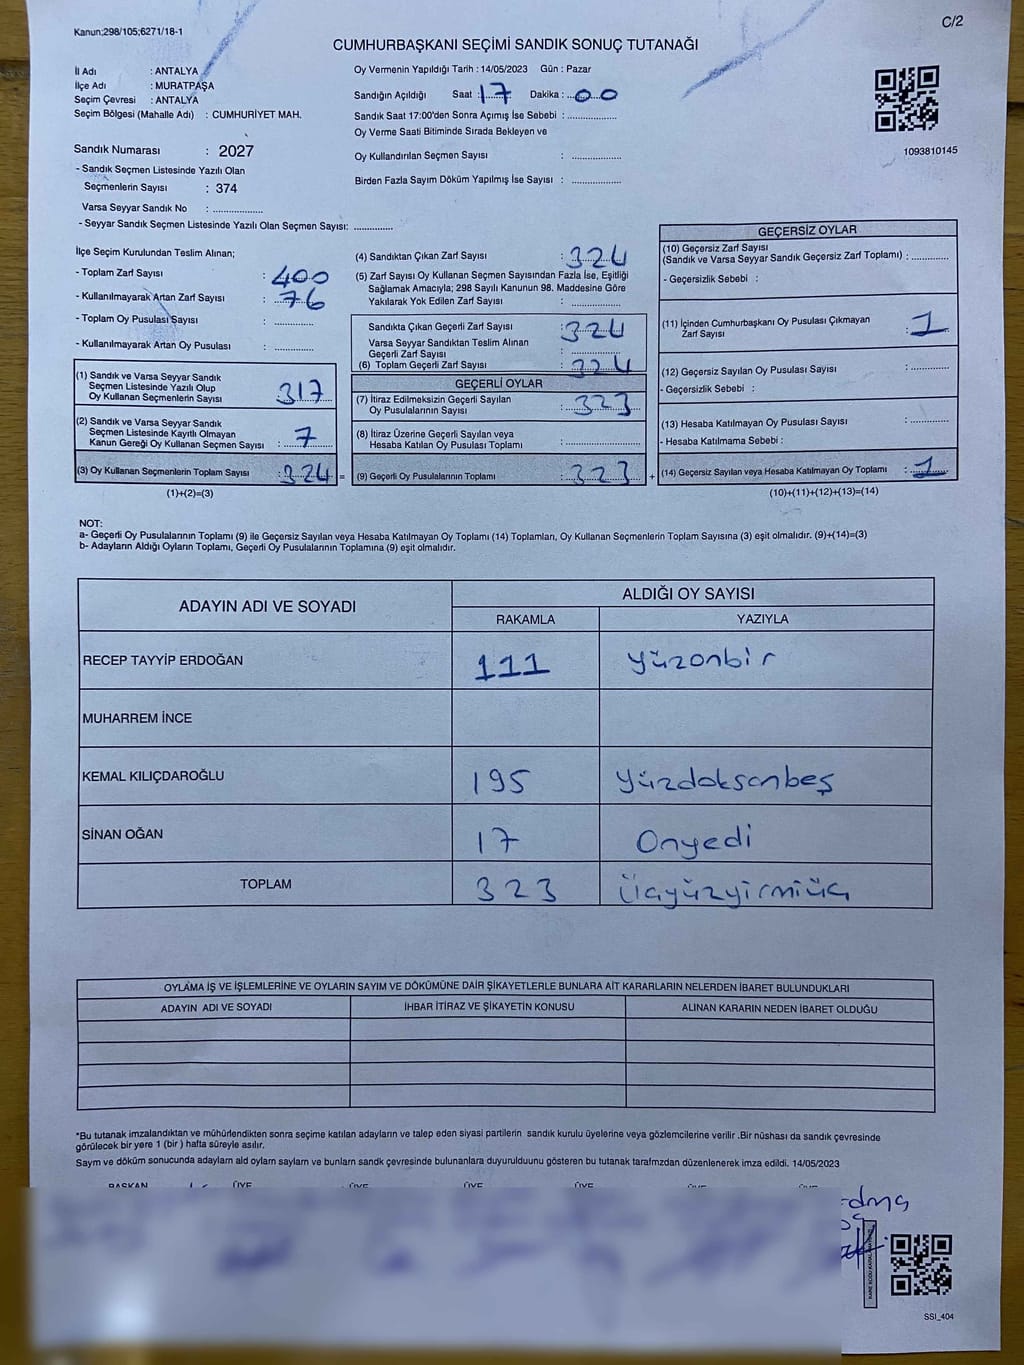 Kanun;298/105;6271/18-1
C/2
CUMHURBAŞKANI SEÇİMİ SANDIK SONUÇ TUTANAĞI
İl Adı : ANTALYA
İlçe Adı : MURATPAŞA
Seçim Çevresi : ANTALYA
Seçim Bölgesi (Mahalle Adı) : CUMHURİYET MAH.
Sandık Numarası : 2027
- Sandık Seçmen Listesinde Yazılı Olan
Seçmenlerin Sayısı : 374
Varsa Seyyar Sandık No : ..................
- Seyyar Sandık Seçmen Listesinde Yazılı Olan Seçmen Sayısı: ..............
Oy Vermenin Yapıldığı Tarih : 14/05/2023 Gün : Pazar
Sandığın Açıldığı Saat : 17 Dakika : 00
Sandık Saat 17:00'den Sonra Açımış İse Sebebi : ..................
Oy Verme Saati Bitiminde Sırada Bekleyen ve
Oy Kullandırılan Seçmen Sayısı : ..................
Birden Fazla Sayım Döküm Yapılmış İse Sayısı : ..................
1093810145
İlçe Seçim Kurulundan Teslim Alınan;
- Toplam Zarf Sayısı : 400
- Kullanılmayarak Artan Zarf Sayısı : 76
- Toplam Oy Pusulası Sayısı : ..............
- Kullanılmayarak Artan Oy Pusulası : ..............
(1) Sandık ve Varsa Seyyar Sandık
Seçmen Listesinde Yazılı Olup
Oy Kullanan Seçmenlerin Sayısı : 317
(2) Sandık ve Varsa Seyyar Sandık
Seçmen Listesinde Kayıtlı Olmayan
Kanun Gereği Oy Kullanan Seçmen Sayısı : 7
(3) Oy Kullanan Seçmenlerin Toplam Sayısı : 324 =
(1)+(2)=(3)
(4) Sandıktan Çıkan Zarf Sayısı : 324
(5) Zarf Sayısı Oy Kullanan Seçmen Sayısından Fazla İse, Eşitliği
Sağlamak Amacıyla; 298 Sayılı Kanunun 98. Maddesine Göre
Yakılarak Yok Edilen Zarf Sayısı : ..................
Sandıkta Çıkan Geçerli Zarf Sayısı : 324
Varsa Seyyar Sandıktan Teslim Alınan
Geçerli Zarf Sayısı : ..................
(6) Toplam Geçerli Zarf Sayısı : 324
GEÇERLİ OYLAR
(7) İtiraz Edilmeksizin Geçerli Sayılan
Oy Pusulalarının Sayısı : 323
(8) İtiraz Üzerine Geçerli Sayılan veya
Hesaba Katılan Oy Pusulası Toplamı : ..................
(9) Geçerli Oy Pusulalarının Toplamı : 323 +
GEÇERSİZ OYLAR
(10) Geçersiz Zarf Sayısı
(Sandık ve Varsa Seyyar Sandık Geçersiz Zarf Toplamı) : ..............
- Geçersizlik Sebebi :
(11) İçinden Cumhurbaşkanı Oy Pusulası Çıkmayan
Zarf Sayısı : 1
(12) Geçersiz Sayılan Oy Pusulası Sayısı : ..............
- Geçersizlik Sebebi :
(13) Hesaba Katılmayan Oy Pusulası Sayısı : ..............
- Hesaba Katılmama Sebebi :
(14) Geçersiz Sayılan veya Hesaba Katılmayan Oy Toplamı : 1
(10)+(11)+(12)+(13)=(14)
NOT:
a- Geçerli Oy Pusulalarının Toplamı (9) ile Geçersiz Sayılan veya Hesaba Katılmayan Oy Toplamı (14) Toplamları, Oy Kullanan Seçmenlerin Toplam Sayısına (3) eşit olmalıdır. (9)+(14)=(3)
b- Adayların Aldığı Oyların Toplamı, Geçerli Oy Pusulalarının Toplamına (9) eşit olmalıdır.
ADAYIN ADI VE SOYADI ALDIĞI OY SAYISI
RAKAMLA YAZIYLA
RECEP TAYYİP ERDOĞAN 111 yüzonbir
MUHARREM İNCE
KEMAL KILIÇDAROĞLU 195 yüzdoksanbeş
SİNAN OĞAN 17 Onyedi
TOPLAM 323 üçyüzyirmiüç
OYLAMA İŞ VE İŞLEMLERİNE VE OYLARIN SAYIM VE DÖKÜMÜNE DAİR ŞİKAYETLERLE BUNLARA AİT KARARLARIN NELERDEN İBARET BULUNDUKLARI
ADAYIN ADI VE SOYADI İHBAR İTİRAZ VE ŞİKAYETİN KONUSU ALINAN KARARIN NEDEN İBARET OLDUĞU
*Bu tutanak imzalandıktan ve mühürlendikten sonra seçime katılan adayların ve talep eden siyasi partilerin sandık kurulu üyelerine veya gözlemcilerine verilir .Bir nüshası da sandık çevresinde
görülecek bir yere 1 (bir ) hafta süreyle asılır.
Sayım ve döküm sonucunda adayların ald oyların sayları ve bunların sandk çevresinde bulunanlara duyurulduunu gösteren bu tutanak tarafmzdan düzenlenerek imza edildi. 14/05/2023
BAŞKAN ÜYE ÜYE ÜYE ÜYE ÜYE
SSI_404